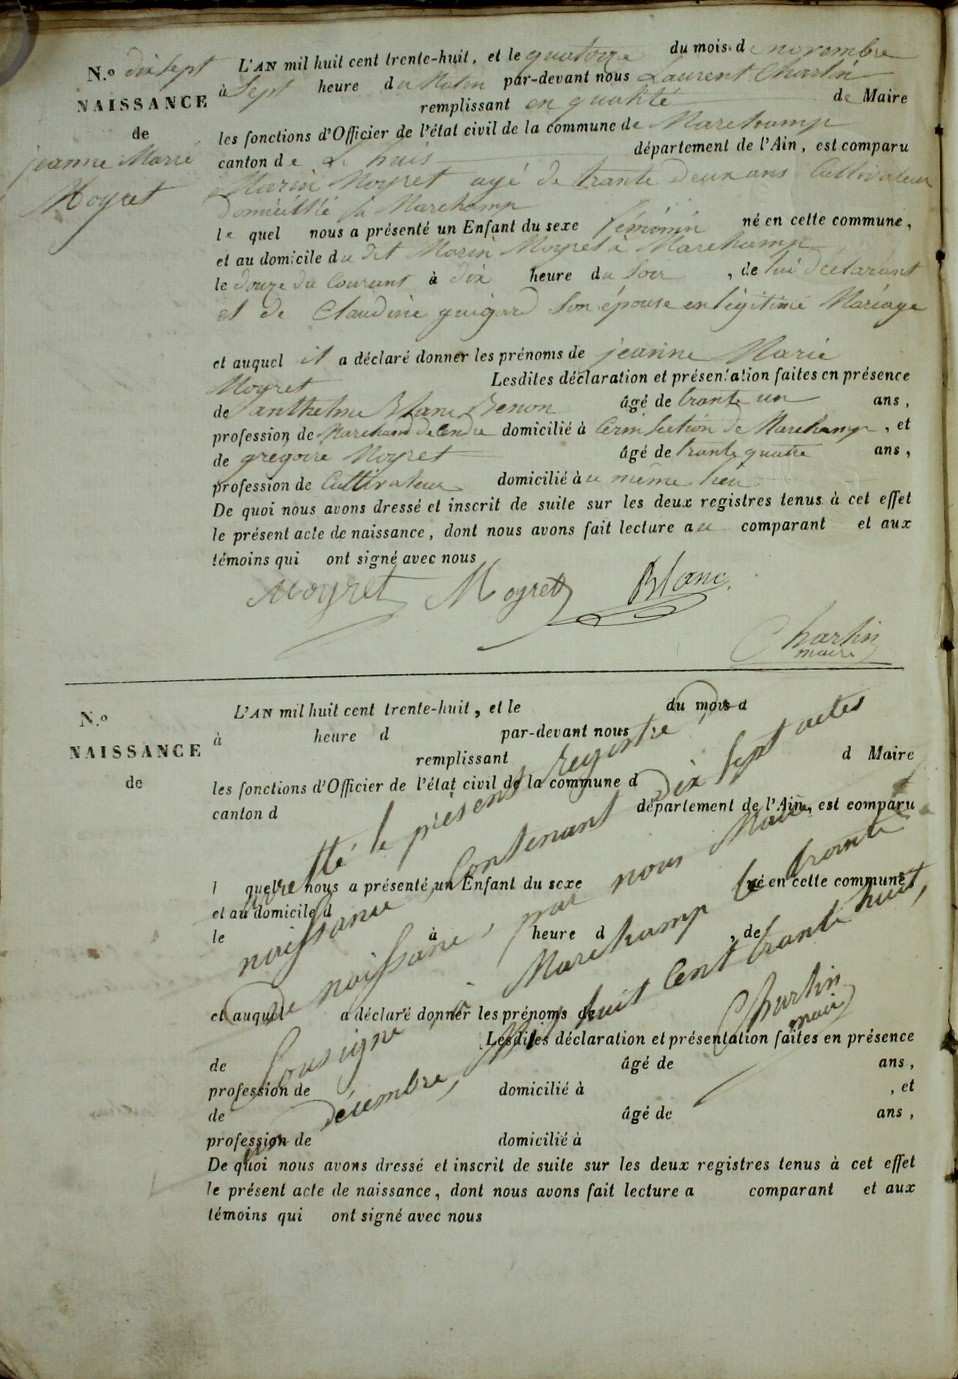 N.o dix sept
NAISSANCE
de
jeanne Marie
Moyret
L'AN mil huit cent trente-huit, et le quatorze du mois de novembre
à Sept heure du Matin par-devant nous Laurent Charlin
remplissant en qualité de Maire
les fonctions d'Officier de l'état civil de la commune de Marchamp
canton de L huis département de l'Ain, est comparu
Marin Moyret agé de trante deux ans Cultivateur
Domicillié à Marchamp
le quel nous a présenté un Enfant du sexe féminin né en cette commune,
et au domicile du dit Marin Moyret à Marchamp
le douze du Courant à dix heure du Soir, de lui déclarant
et de Claudine guigard Son épouse en légitime Mariage
et auquel il a déclaré donner les prénoms de jeanne Marie
Moyret Lesdites déclaration et présentation faites en présence
de anthelme Blanc Benon âgé de trante un ans,
profession de Marchand de Cendre domicilié à Cerin Section de Marchamp, et
de grégoire Moyret âgé de trante quatre ans,
profession de Cultivateur domicilié à au même lieu
De quoi nous avons dressé et inscrit de suite sur les deux registres tenus à cet effet
le présent acte de naissance, dont nous avons fait lecture au comparant et aux
témoins qui ont signé avec nous
Moyret Moyret Blanc
Charlin
maire
N.o
NAISSANCE
de
L'AN mil huit cent trente-huit, et le du mois d
à heure d par-devant nous
remplissant d Maire
les fonctions d'Officier de l'état civil de la commune d
canton d département de l'Ain, est comparu
l quel nous a présenté un Enfant du sexe né en cette commune,
et au domicile d
le à heure d , de
et auquel a déclaré donner les prénoms de
Lesdites déclaration et présentation faites en présence
de âgé de ans,
profession de domicilié à , et
de âgé de ans,
profession de domicilié à
De quoi nous avons dressé et inscrit de suite sur les deux registres tenus à cet effet
le présent acte de naissance, dont nous avons fait lecture a comparant et aux
témoins qui ont signé avec nous
arretté le présent registre
naissance Contenant Dix Sept actes
de naissane, par nous Maire
Sousigné à Marchamp le trante
un décembre, Mil huit Cent trante huit,
Charlin
maire